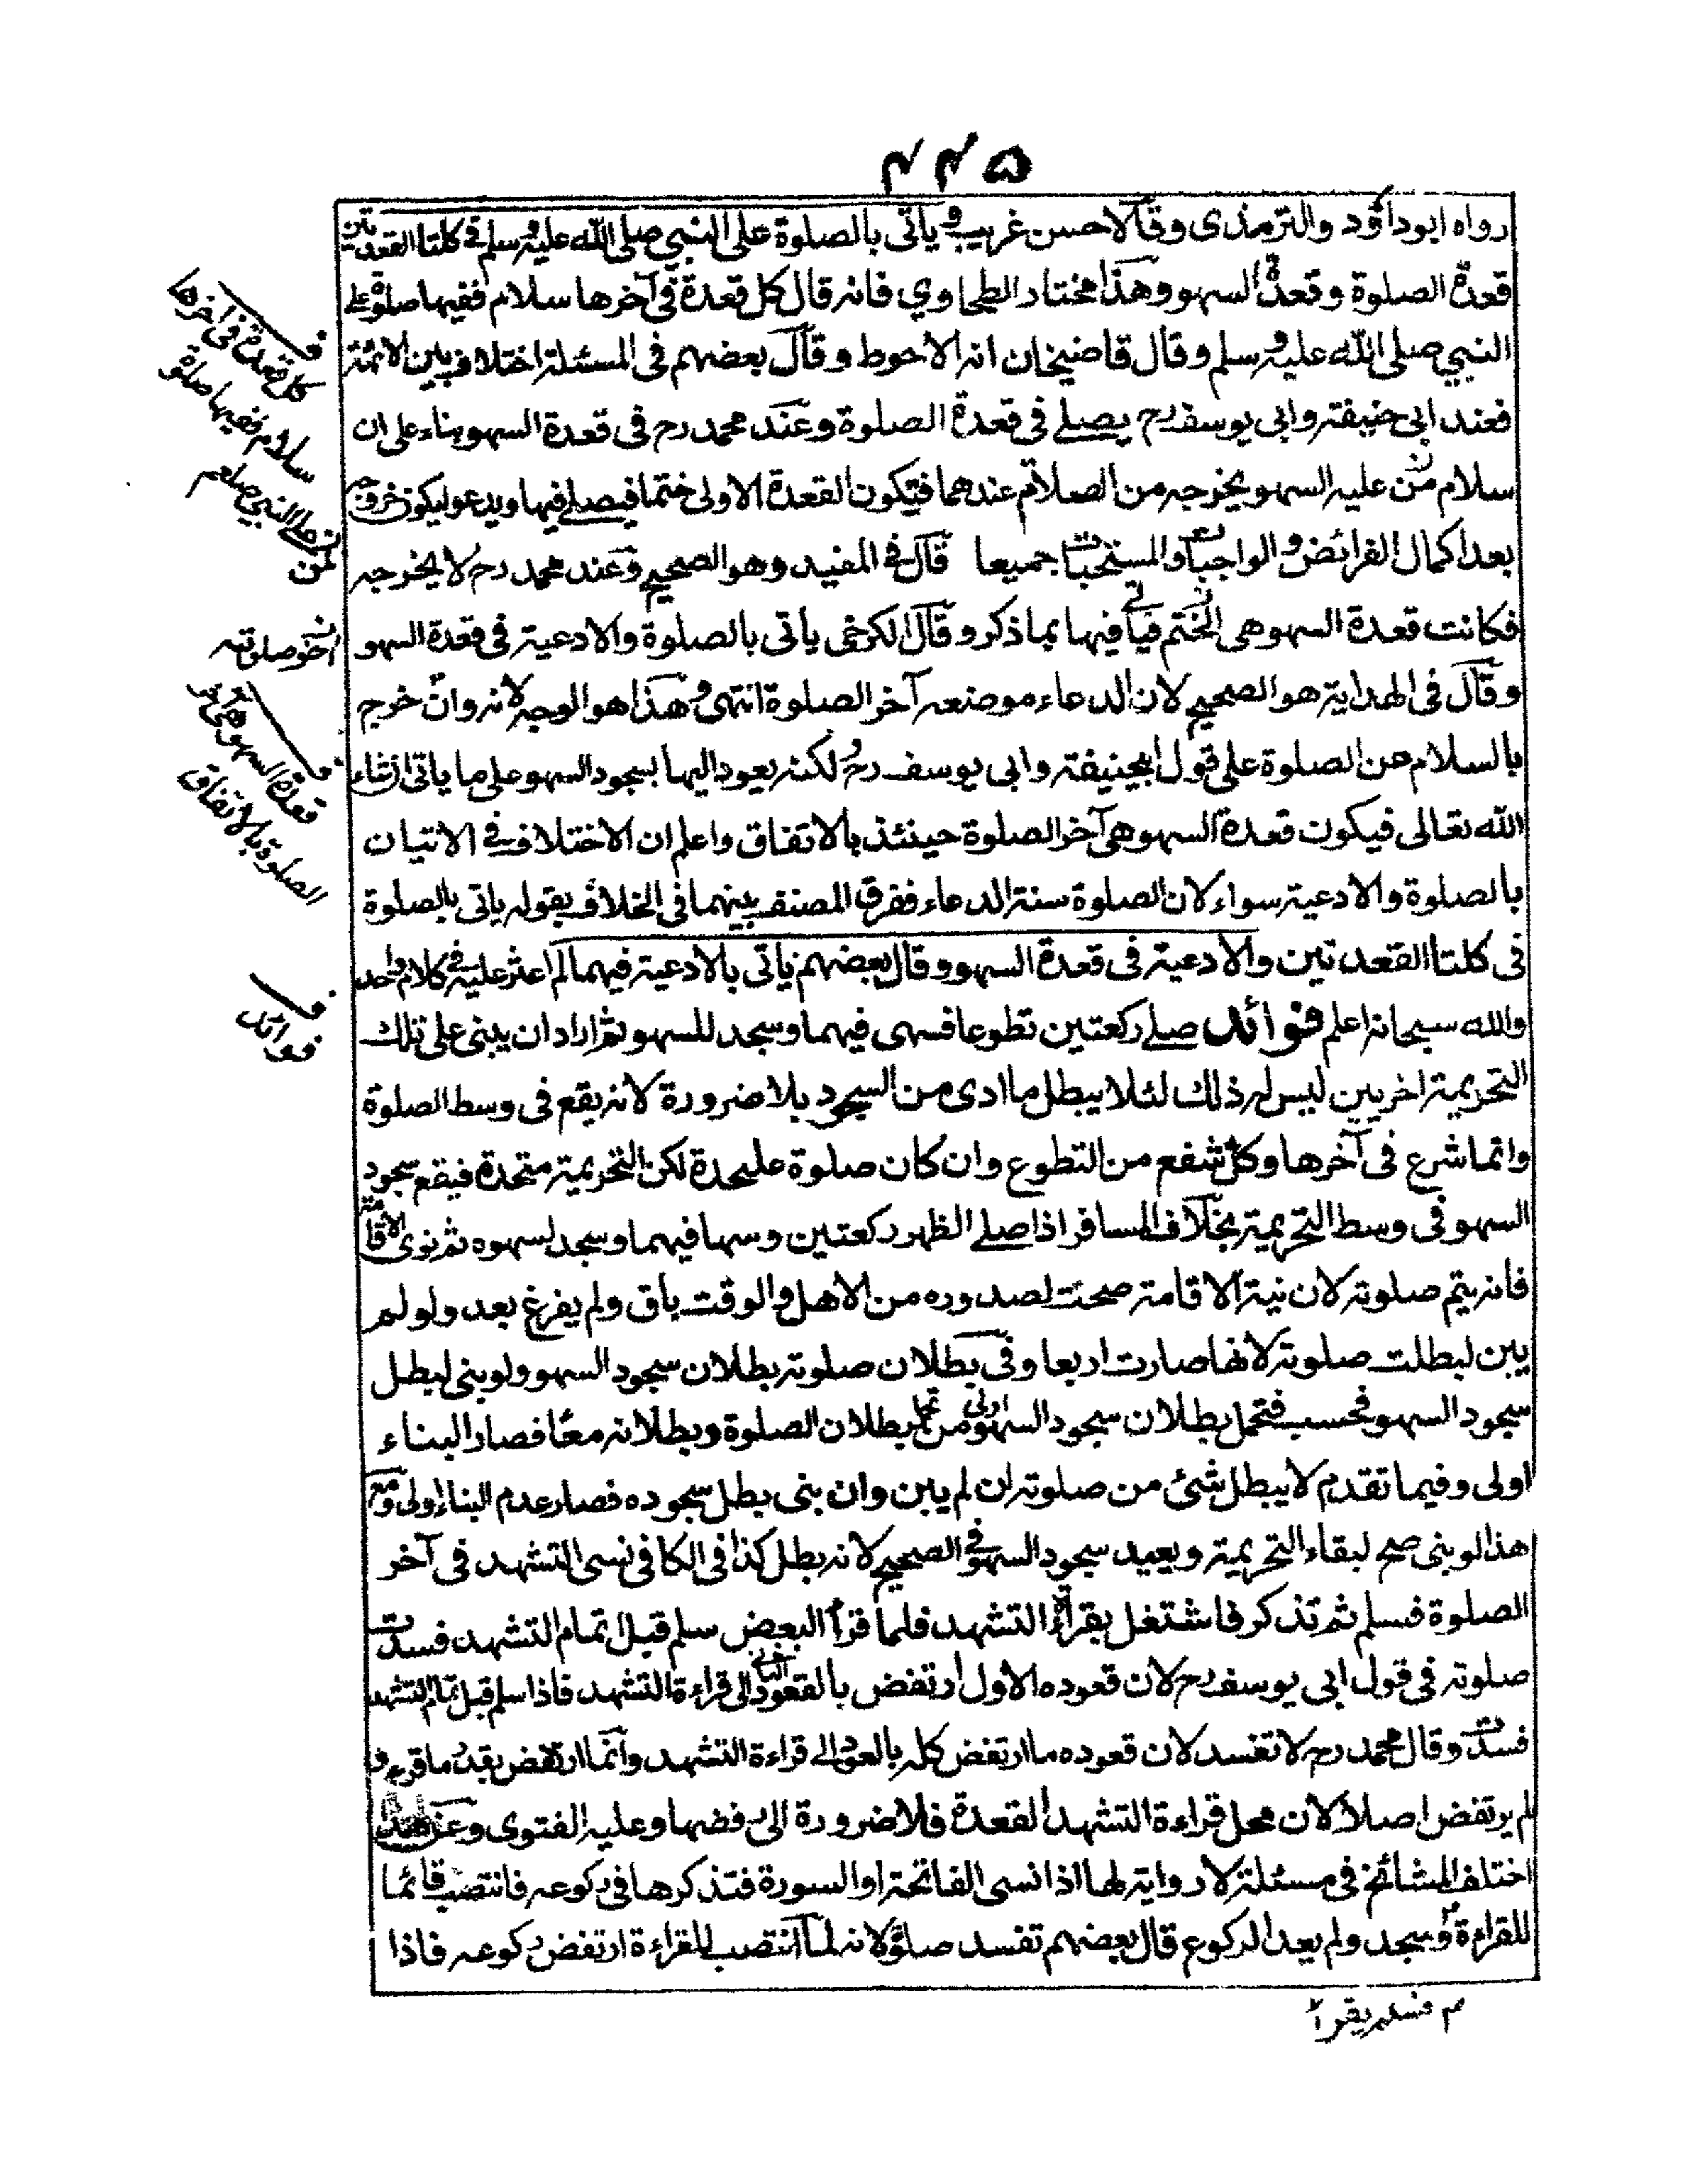 ۴۴۵
رواه ابوداؤد والترمذى وقالا حسن غريب وياتى بالصلوة على النبي صلى الله عليه وسلم فى كلتا القعدتين
قعدة الصلوة وقعدة السهو وهذا مختار الطحاوي فانه قال كل قعدة فى آخرها سلام ففيها صلوة على
النبي صلى الله عليه وسلم وقال قاضيخان انه الاحوط وقال بعضهم فى المسئلة اختلاف بين الائمة
فعند ابى حنيفة وابى يوسف رح يصلى فى قعدة الصلوة وعند محمد رح فى قعدة السهو بناء على ان
سلام من عليه السهو يخرجه من الصلاة عندهما فتكون القعدة الاولى ختما فيصلى فيها ويدعو ليكون خروجه
بعد اكمال الفرائض والواجبات والمستحبات جميعا قال فى المفيد وهو الصحيح وعند محمد رح لا يخرجه
فكانت قعدة السهو هى الختم فيأتى فيها بما ذكر وقال الكرخى ياتى بالصلوة والادعية فى قعدة السهو
وقال فى الهداية هو الصحيح لان الدعاء موضعه آخر الصلوة انتهى وهذا هو الوجه لانه وان خرج
بالسلام عن الصلوة على قول ابيحنيفة وابى يوسف رح لكنه يعود اليها بسجود السهو على ما ياتى ان شاء
الله تعالى فيكون قعدة السهو هى آخر الصلوة حينئذ بالاتفاق واعلم ان الاختلاف فى الاتيان
بالصلوة والادعية سواء لان الصلوة سنة الدعاء ففرق المصنف بينهما فى الخلاف بقوله ياتى بالصلوة
فى كلتا القعدتين والادعية فى قعدة السهو وقال بعضهم ياتى بالادعية فيهما لم اعثر عليه فى كلام احد
والله سبحانه اعلم فوائد صلى ركعتين تطوعا فسهى فيهما وسجد للسهو ثم اراد ان يبنى على تلك
التحريمة اخريين ليس له ذلك لئلا يبطل ما ادى من السجود بلا ضرورة لانه يقع فى وسط الصلوة
وانما شرع فى آخرها وكل شفع من التطوع وان كان صلوة عليحدة لكن التحريمة متحدة فيقع سجود
السهو فى وسط التحريمة بخلاف المسافر اذا صلى الظهر ركعتين وسها فيهما وسجد لسهوه ثم نوى الاقامة
فانه يتم صلوته لان نية الاقامة صحت لصدوره من الاهل والوقت باق ولم يفرغ بعد ولو لم
يبن لبطلت صلوته لانها صارت اربعا وفى بطلان صلوته بطلان سجود السهو ولو بنى لبطل
سجود السهو فحسب فتحمل بطلان سجود السهو اولى من تحمل بطلان الصلوة وبطلانه معًا فصار البناء
اولى وفيما تقدم لا يبطل شئ من صلوته ان لم يبن وان بنى بطل سجوده فصار عدم البناء اولى ومع
هذا لو بنى صح لبقاء التحريمة ويعيد سجود السهو فى الصحيح لانه بطل كذا فى الكافى نسى التشهد فى آخر
الصلوة فسلم ثم تذكر فاشتغل بقراءة التشهد فلما قرأ البعض سلم قبل اتمام التشهد فسدت
صلوته فى قول ابى يوسف رح لان قعوده الاول ارتفض بالقعود الى قراءة التشهد فاذا سلم قبل تمام التشهد
فسدت وقال محمد رح لا تفسد لان قعوده ما ارتفض كله بالعود الى قراءة التشهد وانما ارتفض بقدر ما قرء
لم يرتفض اصلا لان محل قراءة التشهد القعدة فلا ضرورة الى رفضها وعليه الفتوى وعن هذا
اختلف المشائخ فى مسئلة لا رواية لها اذا نسى الفاتحة او السورة فتذكرها فى ركوعه فانتصب قائما
للقراءة وسجد ولم يعد الركوع قال بعضهم تفسد صلوته لانه لما انتصب للقراءة ارتفض ركوعه فاذا
كل قعدة فى آخرها
سلام ففيها صلوة
على النبي صلعم
آخر صلوته
قعدة السهو هى آخر
الصلوة بالاتفاق
فوائد